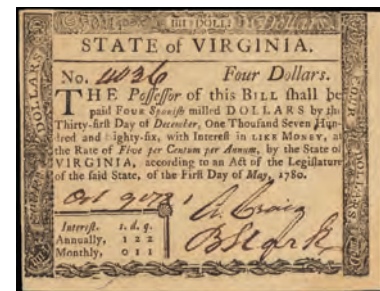 STATE of VIRGINIA.
No. 4036 Four Dollars.
THE Poſſeſſor of this BILL ſhall be
paid FOUR Spaniſh milled DOLLARS by the
Thirty-firſt Day of December, One Thouſand Seven Hun-
dred and Eighty-ſix, with Intereſt in LIKE MONEY, at
the Rate of Five per Centum per Annum, by the State of
VIRGINIA, according to an Act of the Legiſlature
of the ſaid State, of the Firſt Day of May, 1780.
A. Craig
Intereſt. s. d. q.
Annually, 1 2 2
Monthly, 0 1 1
DOLLARS